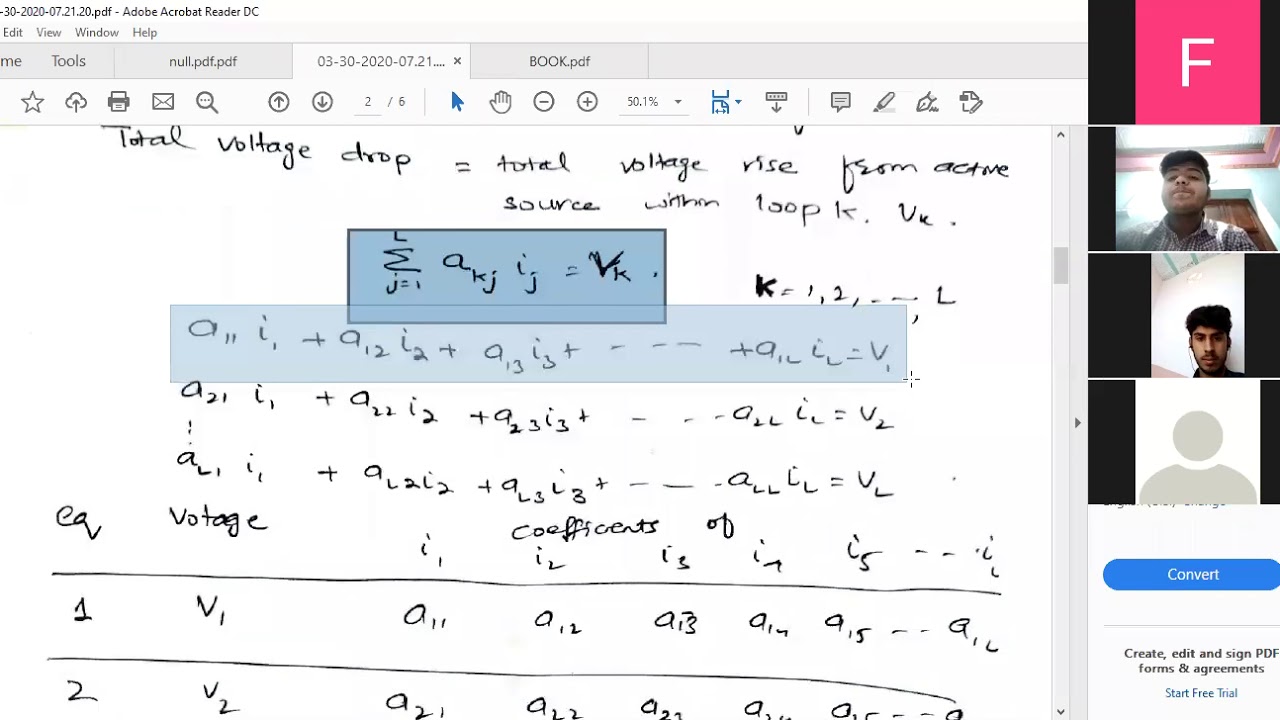 -30-2020-07.21.20.pdf - Adobe Acrobat Reader DC
Edit View Window Help
me Tools null.pdf.pdf 03-30-2020-07.21.... × BOOK.pdf
2 / 6 50.1%
F
Total voltage drop = total voltage rise from active
source within loop k. Vk.
L
Σ akj ij = Vk .
j=1
k = 1, 2, - - -, L
a11 i1 + a12 i2 + a13 i3 + - - - + a1L iL = V1
a21 i1 + a22 i2 + a23 i3 + - - - a2L iL = V2
⋮
aL1 i1 + aL2 i2 + aL3 i3 + - - - aLL iL = VL
eq Votage coefficients of
i1 i2 i3 i4 i5 - - - iL
1 V1 a11 a12 a13 a14 a15 - - a1L
2 V2 a21 a22 a23
Convert
Create, edit and sign PDF
forms & agreements
Start Free Trial